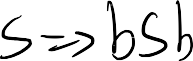 S => bSb